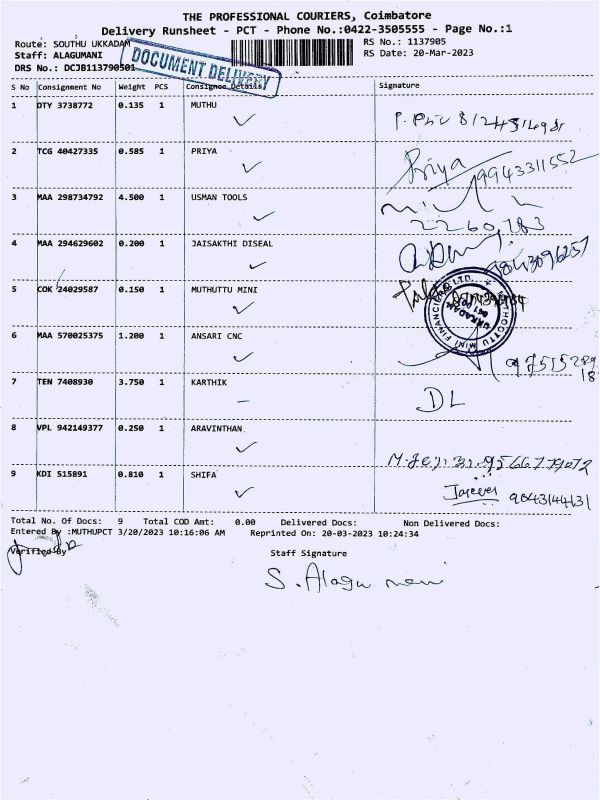 THE PROFESSIONAL COURIERS, Coimbatore
Delivery Runsheet - PCT - Phone No.:0422-3505555 - Page No.:1
Route: SOUTHU UKKADAM
RS No.: 1137905
Staff: ALAGUMANI
RS Date: 20-Mar-2023
DRS No.: DCJB113790501
DOCUMENT DELIVERY
S No Consignment No Weight PCS Consignee Details Signature
1 DTY 3738772 0.135 1 MUTHU
2 TCG 40427335 0.585 1 PRIYA Priya 9943311552
3 MAA 298734792 4.500 1 USMAN TOOLS
4 MAA 294629602 0.200 1 JAISAKTHI DISEAL
5 COK 24029587 0.150 1 MUTHUTTU MINI
6 MAA 570025375 1.200 1 ANSARI CNC
7 TEN 7408930 3.750 1 KARTHIK DL
8 VPL 942149377 0.250 1 ARAVINTHAN
9 KDI 515891 0.810 1 SHIFA
Total No. Of Docs: 9 Total COD Amt: 0.00 Delivered Docs: Non Delivered Docs:
Entered By :MUTHUPCT 3/20/2023 10:16:06 AM Reprinted On: 20-03-2023 10:24:34
Verified By
Staff Signature
S. Alagu mani